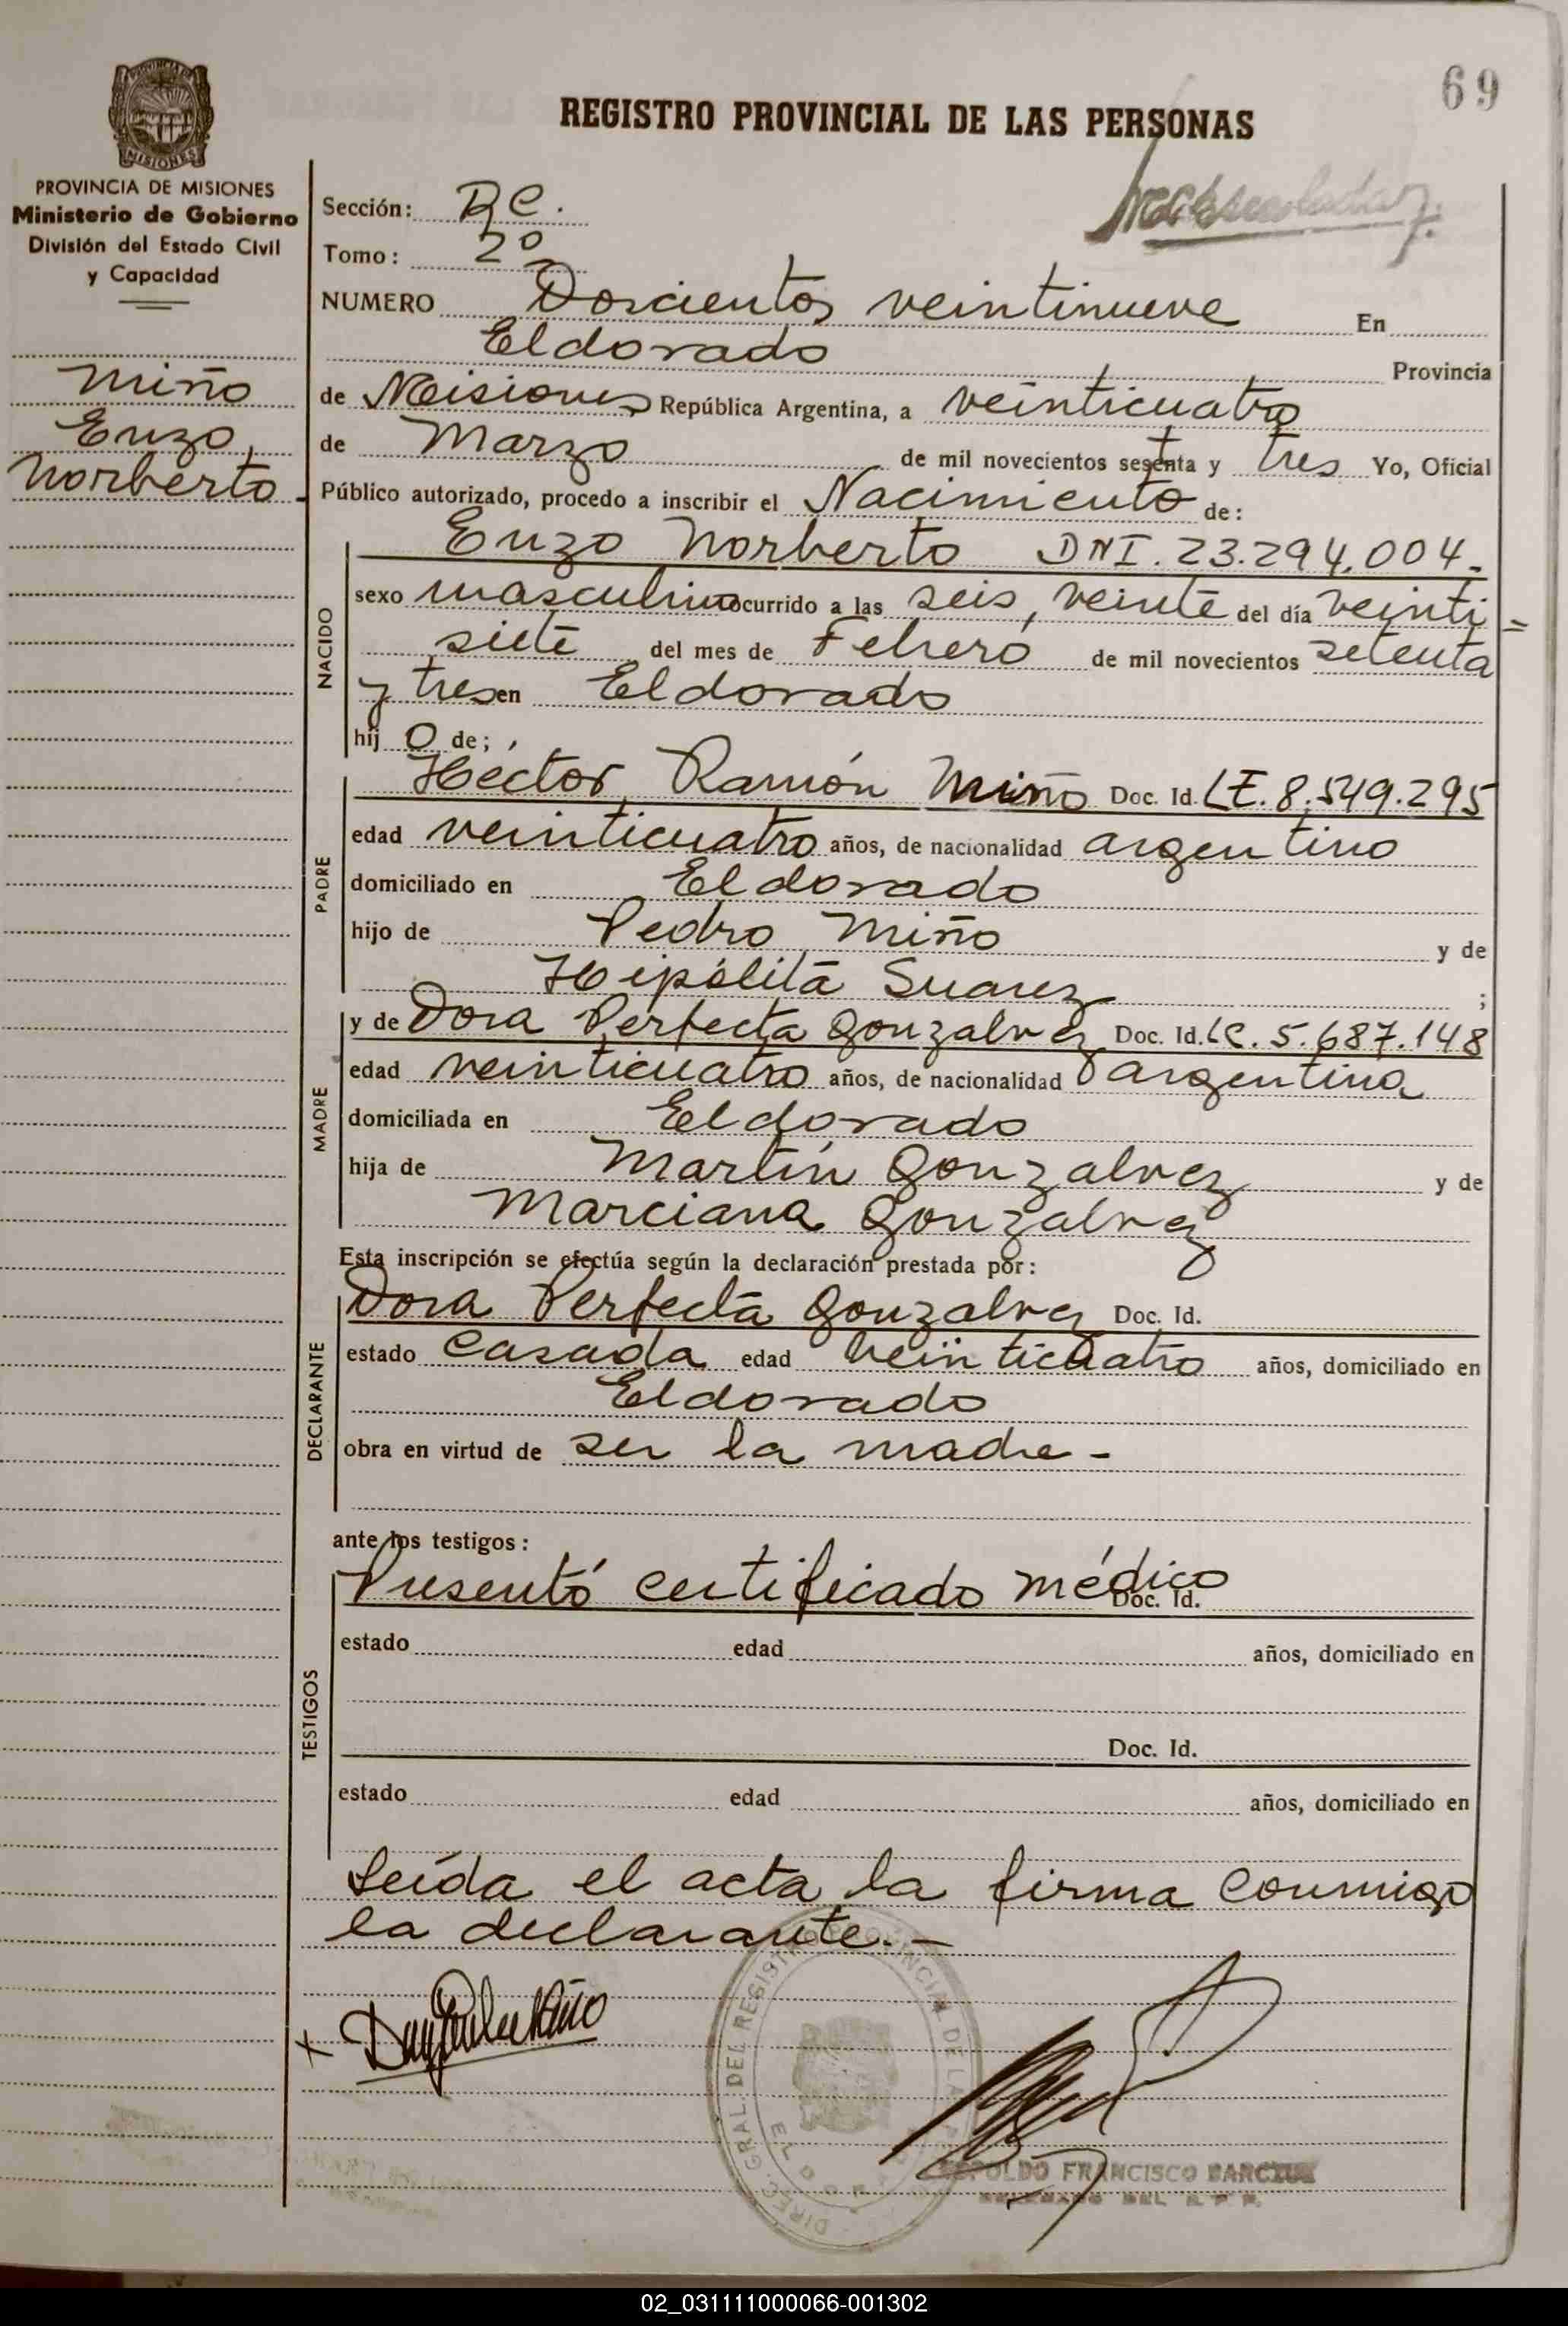 69
REGISTRO PROVINCIAL DE LAS PERSONAS
PROVINCIA DE MISIONES
Ministerio de Gobierno
División del Estado Civil
y Capacidad
Miño
Enzo
Norberto.
Sección:
Tomo: 2º
NUMERO Doscientos veintinueve En
Eldorado Provincia
de Misiones República Argentina, a veinticuatro
de Marzo de mil novecientos setenta y tres Yo, Oficial
Público autorizado, procedo a inscribir el Nacimiento de:
NACIDO
Enzo Norberto DNI. 23.294.004.-
sexo masculino ocurrido a las seis, veinte del día veinti=
siete del mes de Febrero de mil novecientos setenta
y tres en Eldorado
hijo de;
PADRE
Héctor Ramón Miño Doc. Id. LE. 8.549.295
edad veinticuatro años, de nacionalidad argentino
domiciliado en Eldorado
hijo de Pedro Miño y de
Hipólita Suarez ;
MADRE
y de Dora Perfecta Gonzalvez Doc. Id. LC. 5.687.148
edad veinticuatro años, de nacionalidad argentina
domiciliada en Eldorado
hija de Martín Gonzalvez y de
Marciana Gonzalvez
Esta inscripción se efectúa según la declaración prestada por:
DECLARANTE
Dora Perfecta Gonzalvez Doc. Id.
estado Casada edad veinticuatro años, domiciliado en
Eldorado
obra en virtud de ser la madre -
ante los testigos:
TESTIGOS
Presentó certificado médico Doc. Id.
estado edad años, domiciliado en
Doc. Id.
estado edad años, domiciliado en
Leída el acta la firma conmigo
la declarante.-
DIREC. GRAL. DEL REGISTRO PROVINCIAL DE LAS
ELDORADO
FRANCISCO
02_031111000066-001302